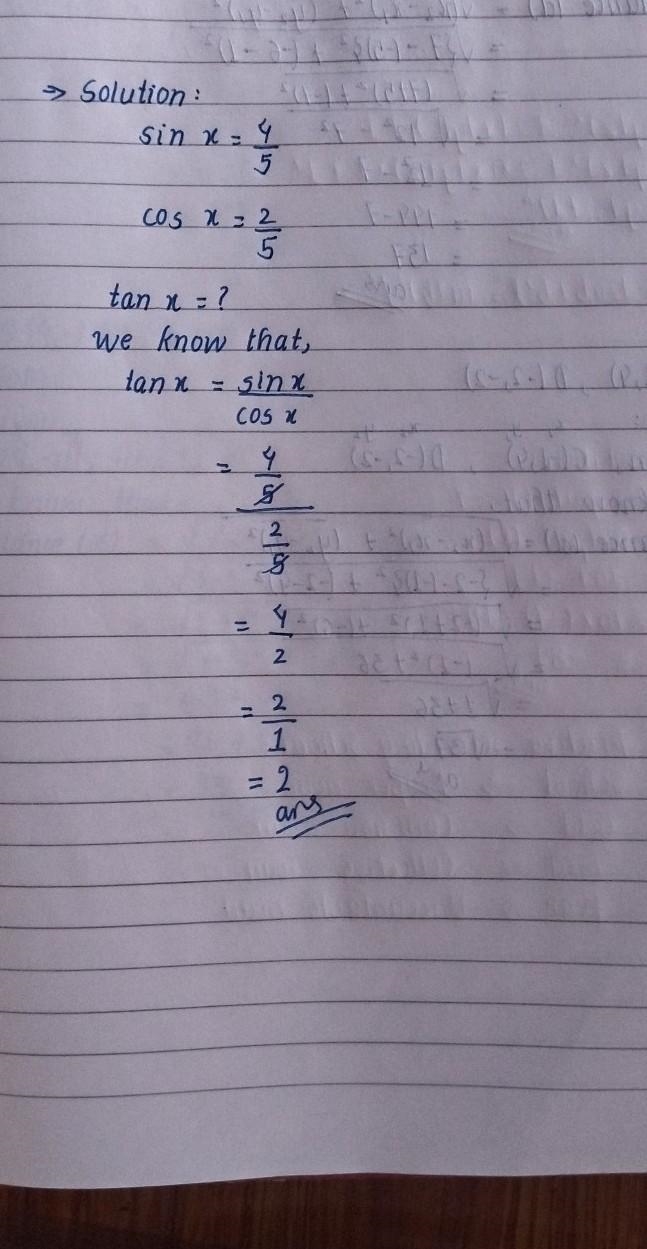 ⇒ Solution:
sin x = 4/5
cos x = 2/5
tan x = ?
we know that,
tan x = sin x / cos x
= 4/5 / 2/5
= 4/2
= 2/1
= 2
ans